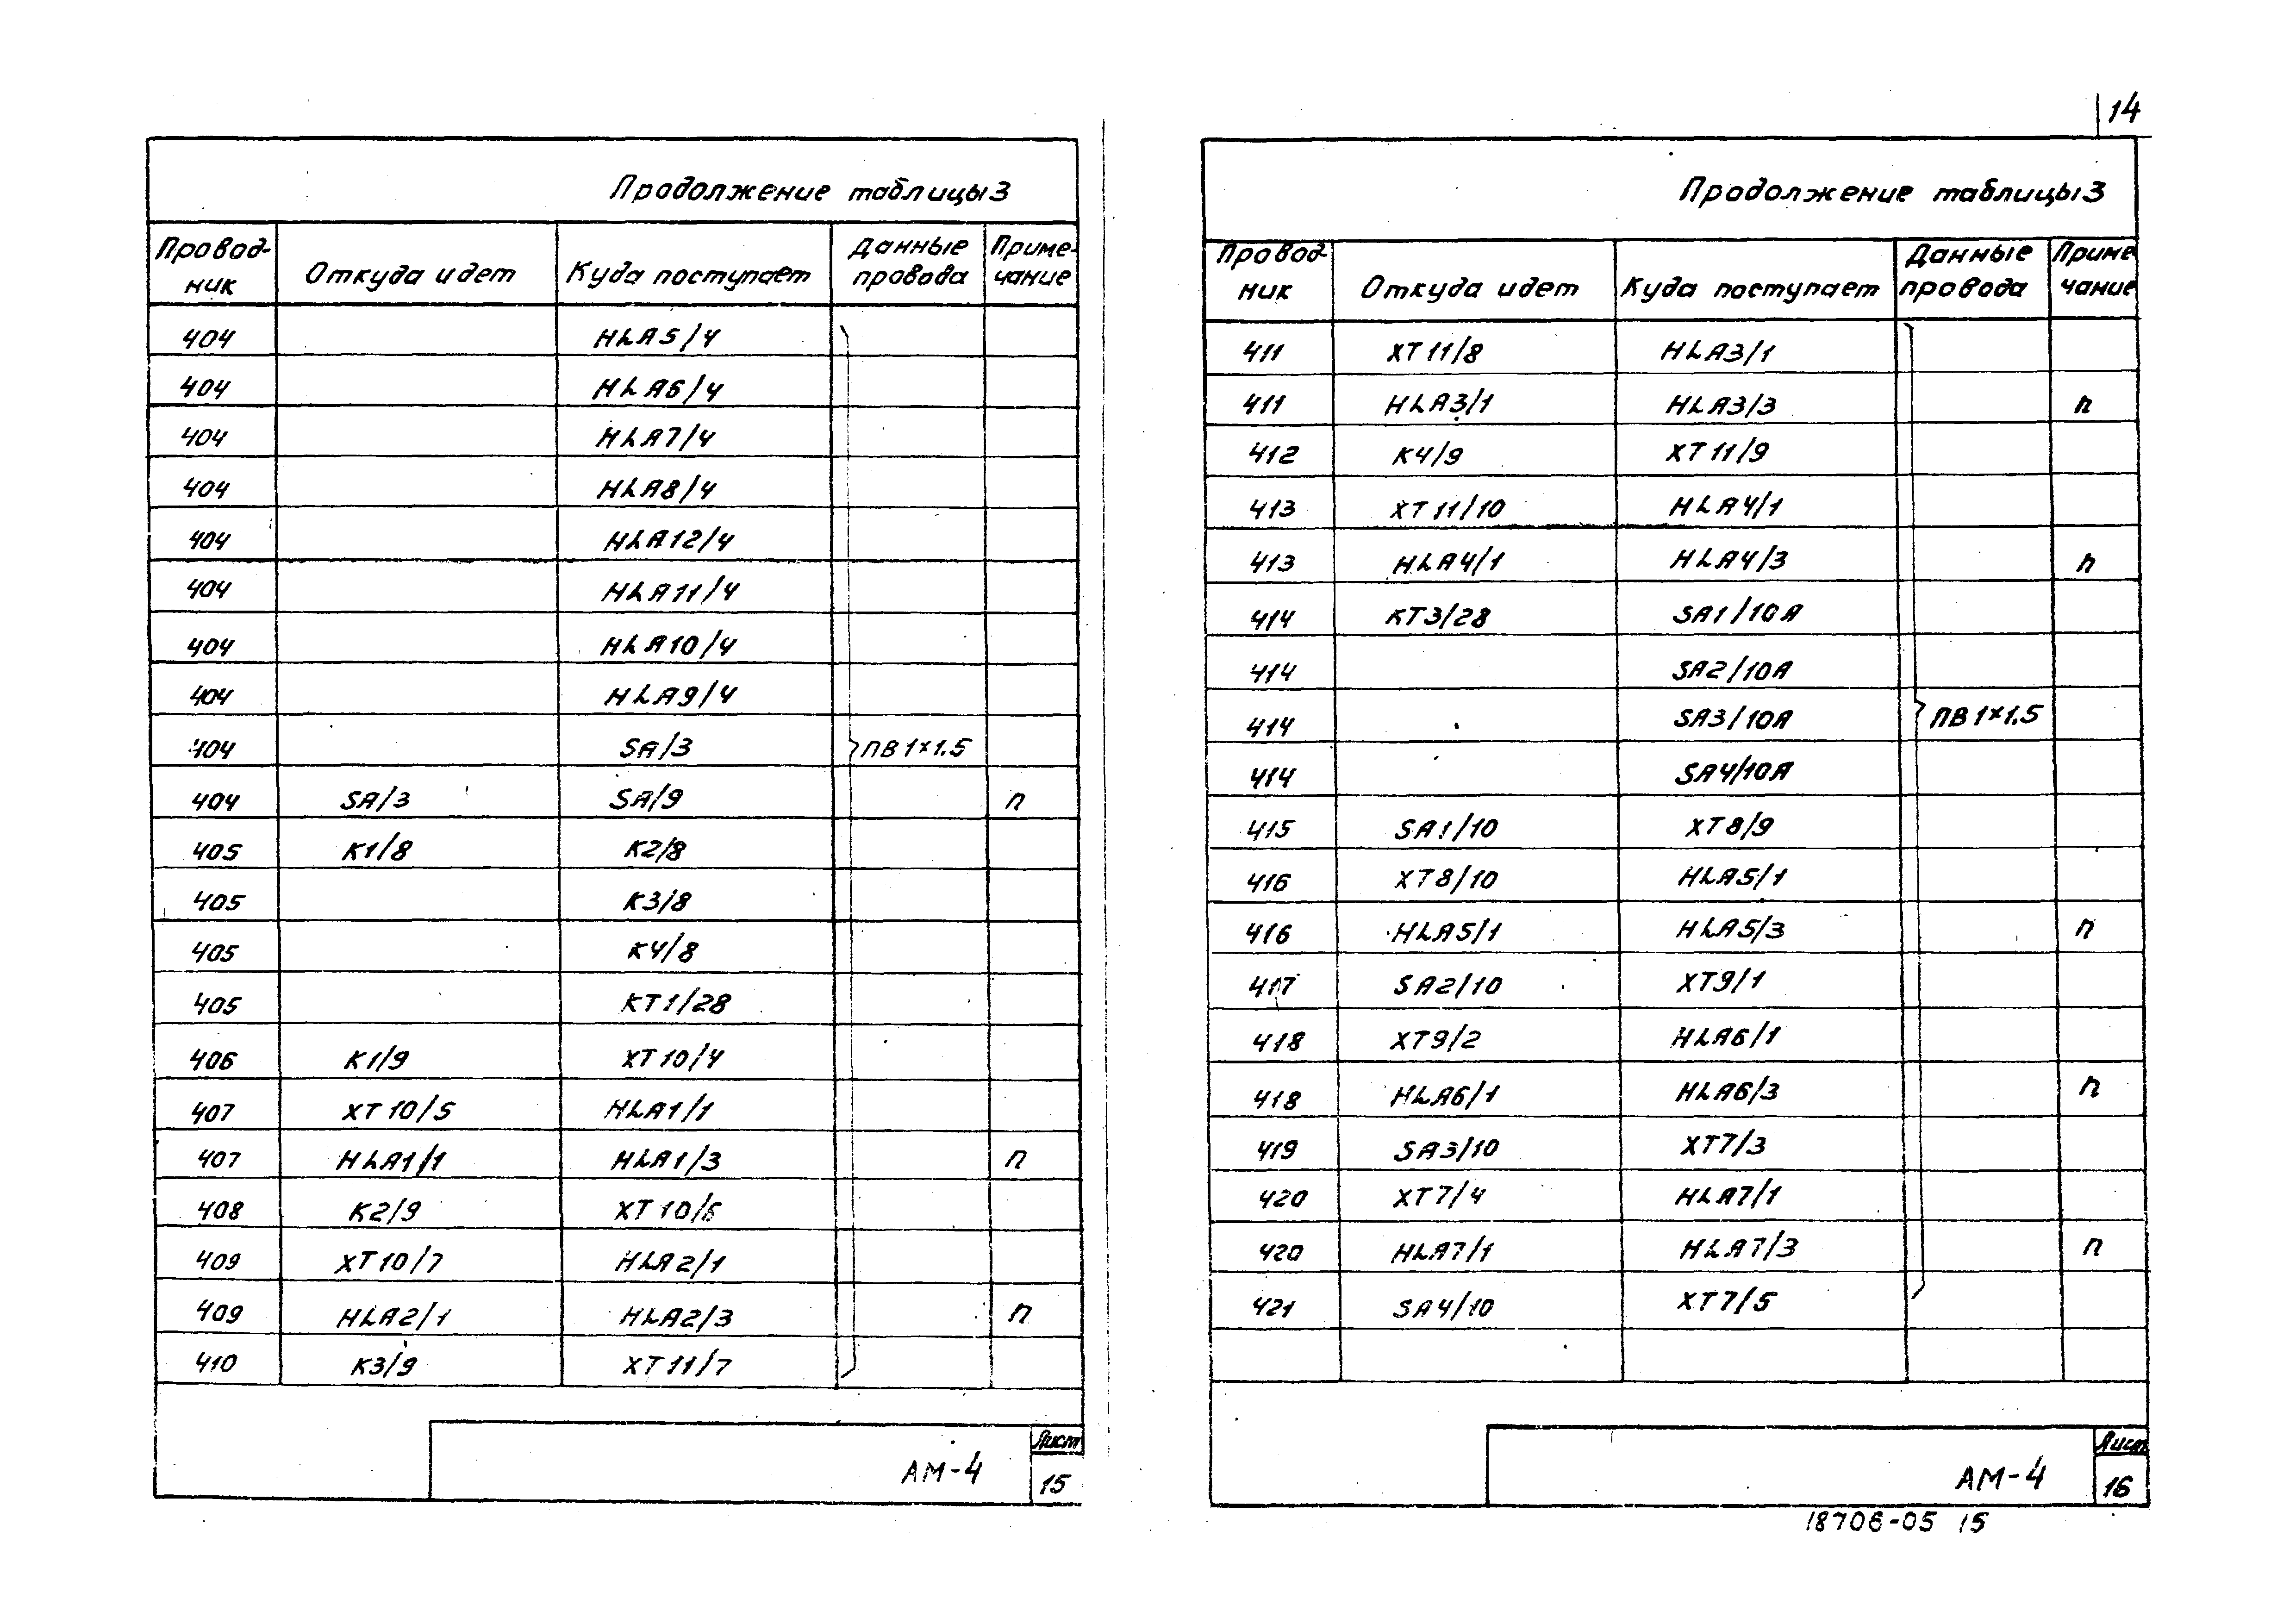 14
Продолжение таблицы 3
Провод-ник Откуда идет Куда поступает Данные провода Приме-чание
404 HLA5/4
404 HLA6/4
404 HLA7/4
404 HLA8/4
404 HLA12/4
404 HLA11/4
404 HLA10/4
404 HLA9/4
404 SA/3 ПВ 1×1.5
404 SA/3 SA/9 п
405 К1/8 К2/8
405 К3/8
405 К4/8
405 КТ1/28
406 К1/9 ХТ10/4
407 ХТ10/5 HLA1/1
407 HLA1/1 HLA1/3 п
408 К2/9 ХТ10/6
409 ХТ10/7 HLA2/1
409 HLA2/1 HLA2/3 п
410 К3/9 ХТ11/7
АМ-4
Лист
15
Продолжение таблицы 3
Провод-ник Откуда идет Куда поступает Данные провода Приме чание
411 ХТ11/8 HLA3/1
411 HLA3/1 HLA3/3 п
412 К4/9 ХТ11/9
413 ХТ11/10 HLA4/1
413 HLA4/1 HLA4/3 п
414 КТ3/28 SA1/10А
414 SA2/10А
414 SA3/10А ПВ 1×1.5
414 SA4/10А
415 SA1/10 ХТ8/9
416 ХТ8/10 HLA5/1
416 HLA5/1 HLA5/3 п
417 SA2/10 ХТ9/1
418 ХТ9/2 HLA6/1
418 HLA6/1 HLA6/3 п
419 SA3/10 ХТ7/3
420 ХТ7/4 HLA7/1
420 HLA7/1 HLA7/3 п
421 SA4/10 ХТ7/5
АМ-4
Лист
16
18706-05 15